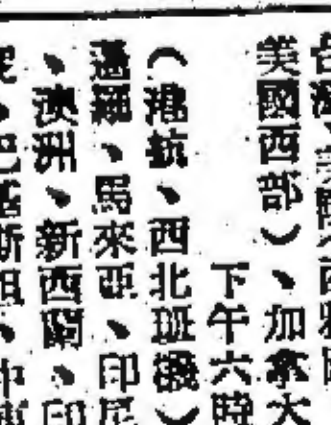 台灣、
美國西部）、加拿大
下午六時
（港航、西北班機）
暹羅、馬來亞、印尼
、澳洲、新西蘭、印
、巴基斯坦、